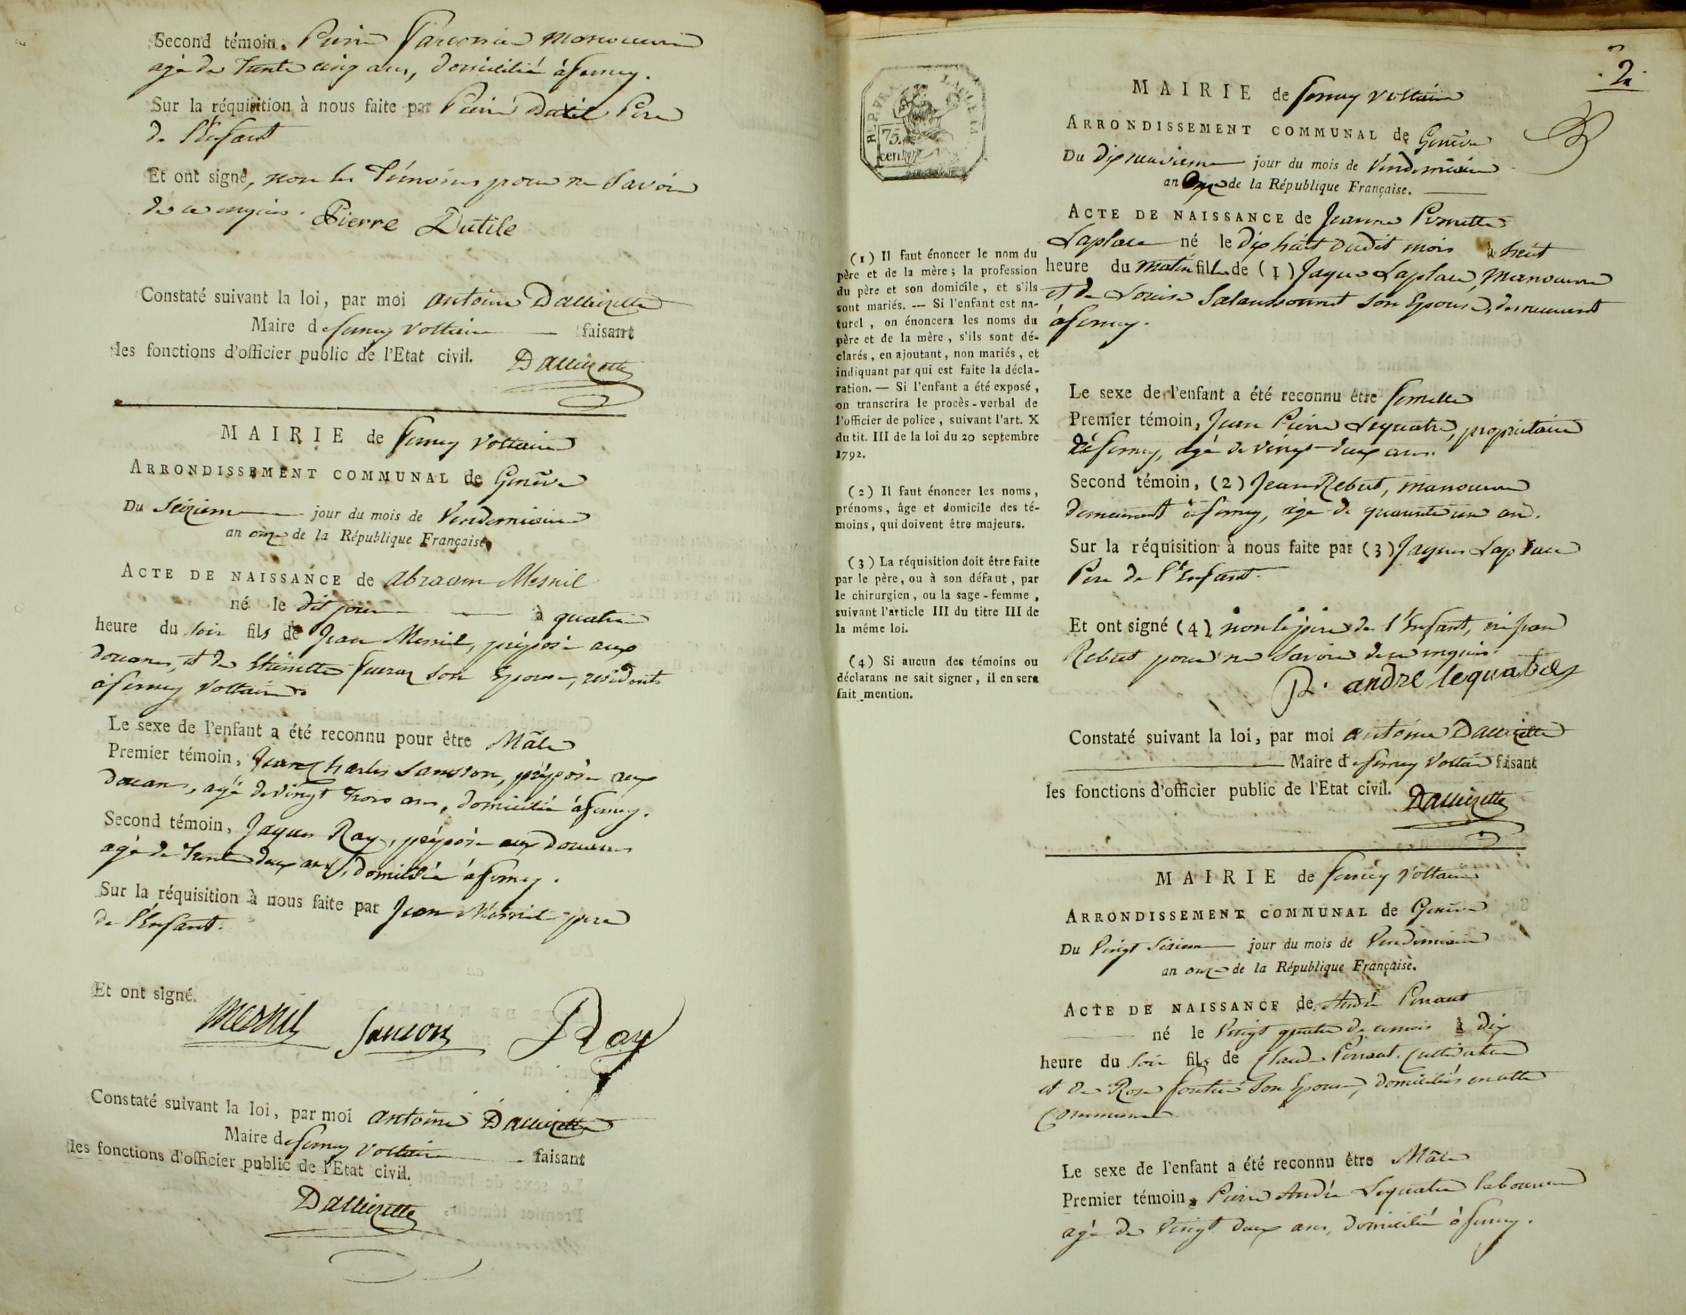 Second témoin, Pierre manouvrier
agé de trente cinq ans, domicilié à ferney.
Sur la réquisition à nous faite par Pierre Dutil Pere
de l'Enfant
Et ont signé, non les témoins pour ne Savoir
de ce enquis. Pierre Dutile
Constaté suivant la loi, par moi antoine Dallizette
Maire de ferney Voltaire faisant
les fonctions d'officier public de l'Etat civil. Dallizette
MAIRIE de ferney Voltaire
ARRONDISSEMENT COMMUNAL de Genève
Du Seizieme jour du mois de Vendemiaire
an onze de la République Française
ACTE DE NAISSANCE de abraam Mesnil
né le dit jour à quatre
heure du soir fils de Jean Mesnil, préposé aux
douanes, et de son Epouse, residents
à ferney Voltaire
Le sexe de l'enfant a été reconnu pour être Mâle
Premier témoin, Jean Charles Sansson, préposé aux
douanes, agé de vingt trois ans, domicilié à ferney.
Second témoin, Jaques Ray, préposé aux douanes
agé de trente deux ans, domicilié à ferney.
Sur la réquisition à nous faite par Jean Mesnil pere
de l'Enfant.
Et ont signé.
Mesnil Sanson Ray
Constaté suivant la loi, par moi antoine Dallizette
Maire de ferney Voltaire faisant
les fonctions d'officier public de l'Etat civil.
Dallizette
2.
REP. FRA.
75.
cent.
(1) Il faut énoncer le nom du
père et de la mère; la profession
du père et son domicile, et s'ils
sont mariés. — Si l'enfant est na-
turel, on énoncera les noms du
père et de la mère, s'ils sont dé-
clarés, en ajoutant, non mariés, et
indiquant par qui est faite la décla-
ration. — Si l'enfant a été exposé,
on transcrira le procès-verbal de
l'officier de police, suivant l'art. X
du tit. III de la loi du 20 septembre
1792.
(2) Il faut énoncer les noms,
prénoms, âge et domicile des té-
moins, qui doivent être majeurs.
(3) La réquisition doit être faite
par le père, ou à son défaut, par
le chirurgien, ou la sage-femme,
suivant l'article III du titre III de
la même loi.
(4) Si aucun des témoins ou
déclarans ne sait signer, il en sera
fait mention.
MAIRIE de ferney Voltaire
ARRONDISSEMENT COMMUNAL de Genève
Du dix neuvieme jour du mois de Vendemiaire
an onze de la République Française.
ACTE DE NAISSANCE de Jeanne Pernette
Laplace né le dix huit dudit mois à huit
heure du matin fille de (1) Jaques Laplace, manouvre
et de Louise son Epouse, demeurant
à ferney.
Le sexe de l'enfant a été reconnu être femelle
Premier témoin, Jean Pierre Lequatre, propriétaire
à ferney, agé de vingt-deux ans.
Second témoin, (2) Jean Rebut, manouvre
demeurant à ferney, agé de quarante un an.
Sur la réquisition à nous faite par (3) Jaques Laplace
Pere de l'Enfant.
Et ont signé (4) non le pere de l'Enfant, ni Jean
Rebut pour ne Savoir de ce enquis.
P. andré lequatre
Constaté suivant la loi, par moi antoine Dallizette
Maire de ferney Voltaire faisant
les fonctions d'officier public de l'Etat civil. Dallizette
MAIRIE de ferney Voltaire
ARRONDISSEMENT COMMUNAL de Genève
Du Vingt Sixieme jour du mois de Vendemiaire
an onze de la République Française.
ACTE DE NAISSANCE de André Penaut
né le Vingt quatre de ce mois à dix
heure du soir fils de Claude Penaut, cultivateur
et de Rose son Epouse, domiciliés en cette
Commune
Le sexe de l'enfant a été reconnu être Mâle
Premier témoin, Pierre André Lequatre laboureur
agé de vingt deux ans, domicilié à ferney.